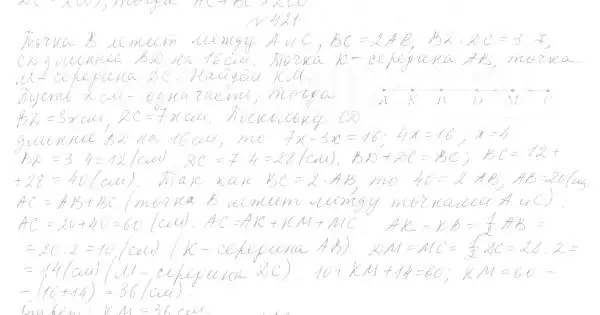 № 421
Точка B лежит между A и C, BC = 2AB, BD : DC = 3 : 7,
CD длиннее BD на 16 см. Точка K - середина AB, точка
M - середина DC. Найдём KM.
Пусть x см - одна часть, тогда
A K B D M C
BD = 3x см, DC = 7x см. Поскольку CD
длиннее BD на 16 см, то 7x - 3x = 16; 4x = 16, x = 4
BD = 3·4 = 12 (см) DC = 7·4 = 28 (см). BD + DC = BC; BC = 12 +
+ 28 = 40 (см). Так как BC = 2·AB, то 40 = 2 AB, AB = 20 (см)
AC = AB + BC (точка B лежит между точками A и C).
AC = 20 + 40 = 60 (см). AC = AK + KM + MC. AK = KB = 1/2 AB =
= 20 : 2 = 10 (см) (K - середина AB) DM = MC = 1/2 DC = 28 : 2 =
= 14 (см) (M - середина DC) 10 + KM + 14 = 60; KM = 60 -
- (10 + 14) = 36 (см)
Ответ: KM = 36 см.